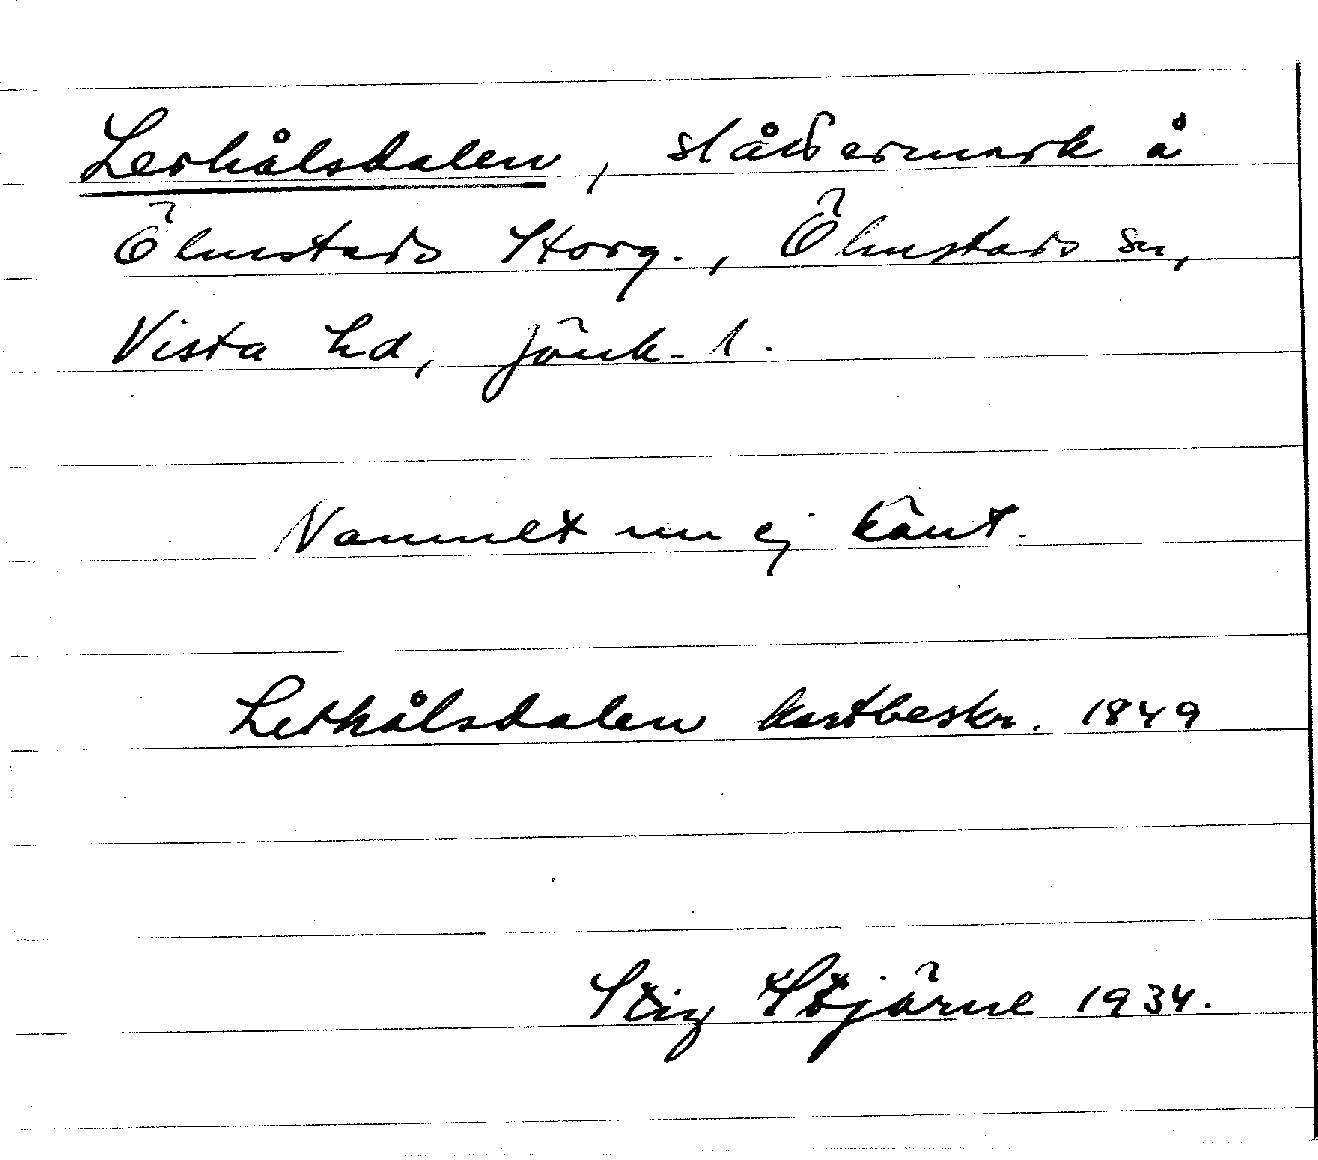 Lerhålsdalen, slåttermark å
Ölmstads Storg., Ölmstads sn,
Vista hd, Jönk. l.
Namnet nu ej känt.
Lerhålsdalen kartbeskr. 1849
Stig Stjärne 1934.